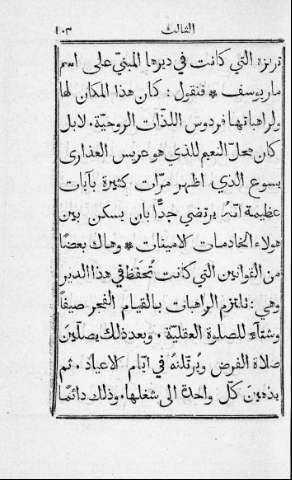 الثالث ١٠٣
تريزه التي كانت في ديرها المبني على اسم
ماريوسف * فنقول : كان هذا المكان لها
ولراهباتها فردوس اللذّات الروحيّة. لا بل
كان محلّ النعيم للذي هو عريس العذارى
يسوع الذي اظهر مرّات كثيرة بآيات
عظيمة انهُ يرتضي جدًّا بان يسكن بين
هولاء الخادمات الامينات * وهاك بعضًا
من القوانين التي كانت تُحفَظ في هذا الدير
وهي : تلتزم الراهبات بالقيام الفجر صيفًا
وشتاءً للصلوة العقليّة . وبعد ذلك يصلّينَ
صلاة الفرض ويُرتلنهُ في ايّام الاعياد . ثم
يذهبنَ كلّ واحدة الى شغلها. وذلك دائمًا